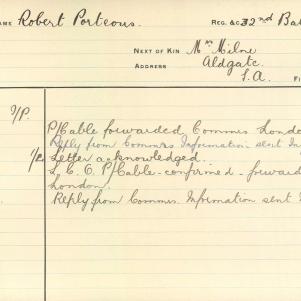 NAME Robert Porteous. REG. &C. 32nd Bat
NEXT OF KIN Mrs Milne
ADDRESS Aldgate.
S.A. FI
I/P. P/Cable forwarded Commrs London
Reply from Commrs Information sent In
Letter acknowledged.
L.C.O. P/Cable - confirmed - forward
London.
Reply from Commrs. Information sent I